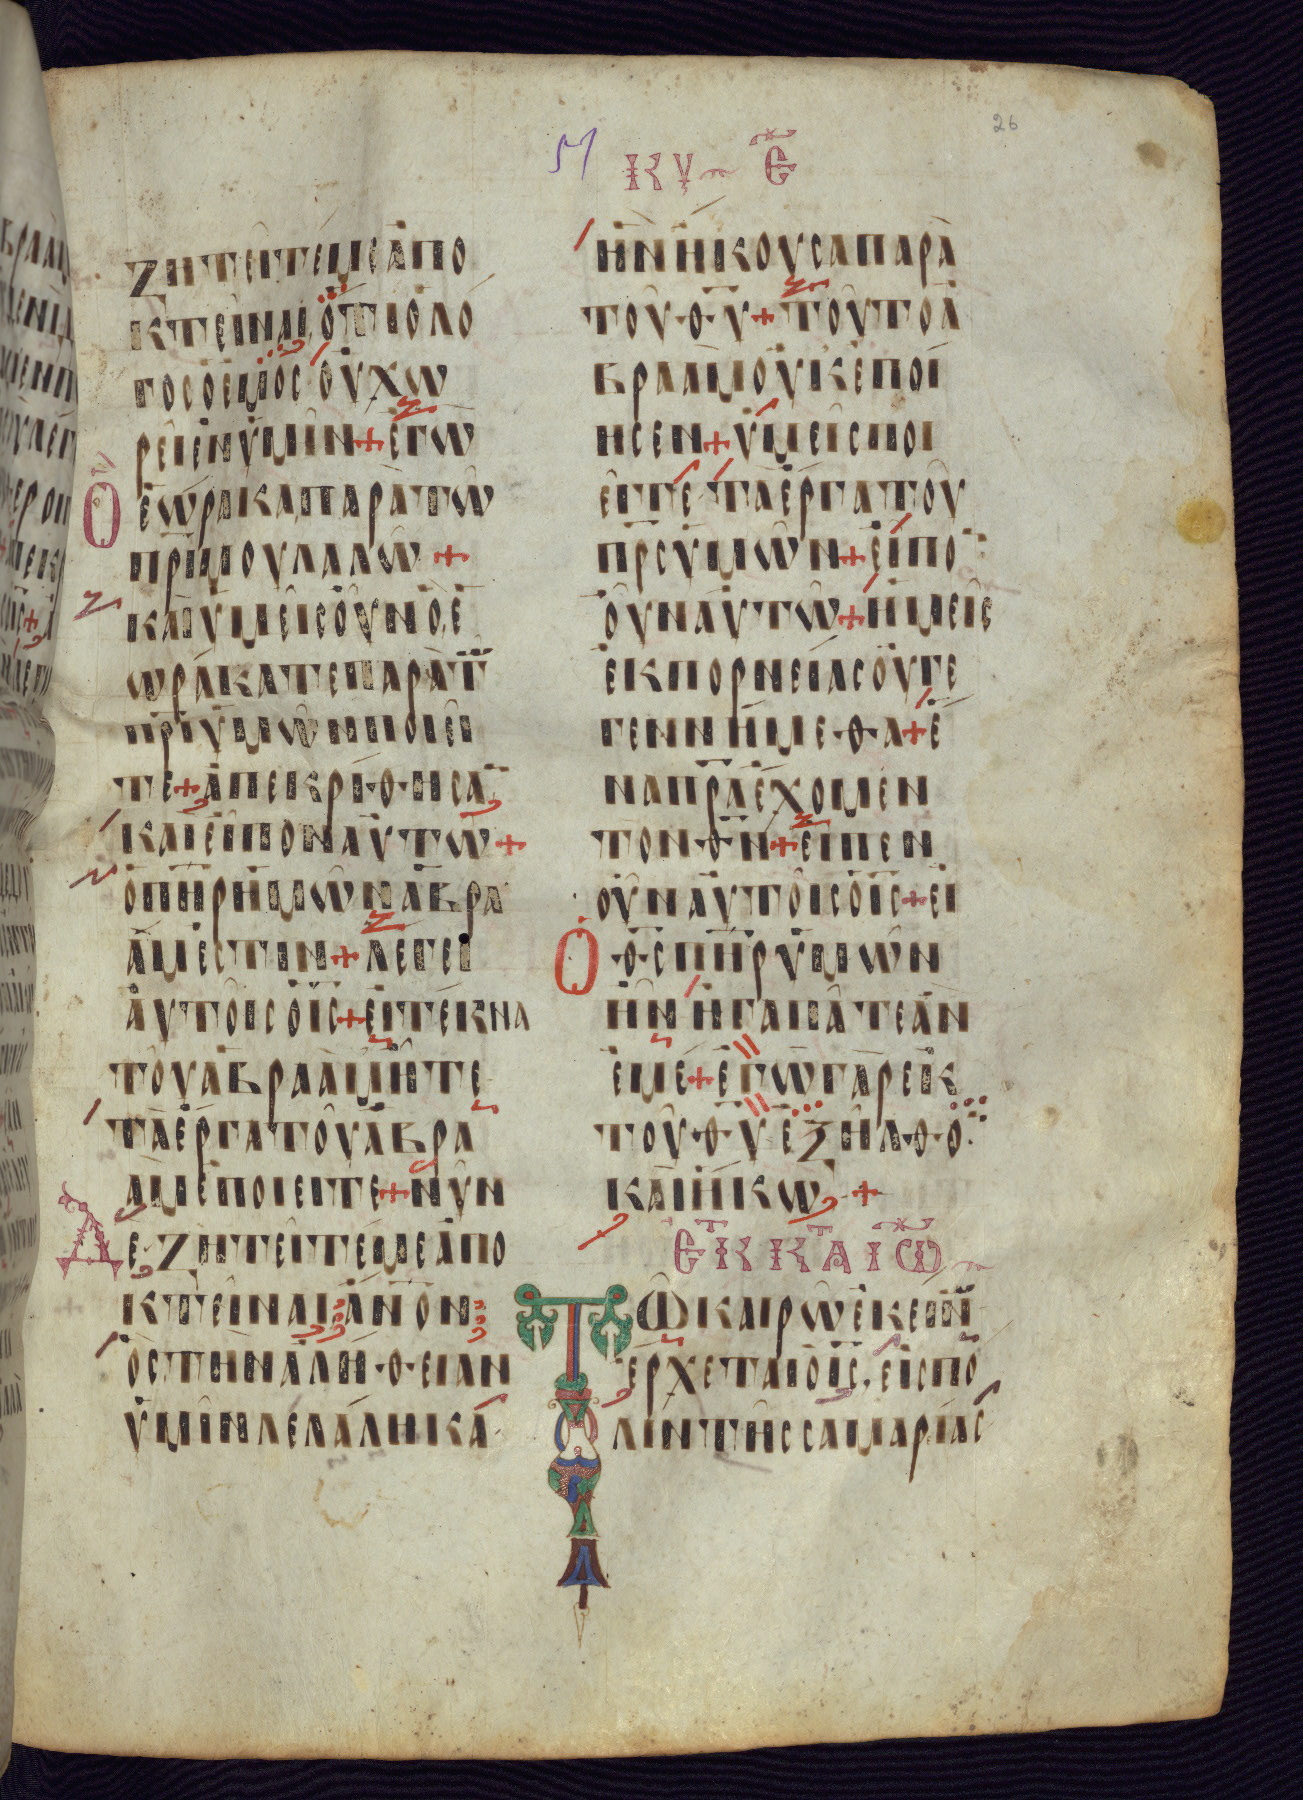 26
51 ΚΥ Ε
ΖΗΤΕΙΤΕΜΕΑΠΟ
ΚΤΕΙΝΑΙΟΤΙΟΛΟ
ΓΟСΟΕΜΟСΟΥΧΩ
ΡΕΙΕΝΥΜΙΝ+ΕΓΩ
ΟΕΩΡΑΚΑΠΑΡΑΤΩ
ΠΡΙΜΟΥΛΑΛΩ+
ΚΑΙΥΜΕΙСΟΥΝΟΕ
ΩΡΑΚΑΤΕΠΑΡΑΤ
ΠΡΙΥΜΩΝΠΟΙΕΙ
ΤΕ+ΑΠΕΚΡΙΘΗСΑ
ΚΑΙΕΙΠΟΝΑΥΤΩ+
ΟΠΗΡΗΜΩΝΑΒΡΑ
ΑΜΕСΤΙΝ+ΛΕΓΕΙ
ΑΥΤΟΙСΟΙС+ΕΙΤΕΚΝΑ
ΤΟΥΑΒΡΑΑΜΗΤΕ
ΤΑΕΡΓΑΤΟΥΑΒΡΑ
ΑΜΕΠΟΙΕΙΤΕ+ΝΥΝ
ΔΕΖΗΤΕΙΤΕΜΕΑΠΟ
ΚΤΕΙΝΑΙΑΝΟΝ
ΟСΤΗΝΑΛΗΘΕΙΑΝ
ΥΜΙΝΛΕΛΑΛΗΚΑ
ΗΝΗΚΟΥСΑΠΑΡΑ
ΤΟΥΘΥ+ΤΟΥΤΟΑ
ΒΡΑΑΜΟΥΚΕΠΟΙ
ΗСΕΝ+ΥΜΕΙСΠΟΙ
ΕΙΤΕΤΑΕΡΓΑΤΟΥ
ΠΡСΥΜΩΝ+ΕΙΠΟ
ΟΥΝΑΥΤΩ+ΗΜΕΙС
ΕΚΠΟΡΝΕΙΑСΟΥΓΕ
ΓΕΝΝΗΜΕΘΑ+Ε
ΝΑΠΡΑΕΧΟΜΕΝ
ΤΟΝΘΝ+ΕΙΠΕΝ
ΟΥΝΑΥΤΟΙСΟΙС+ΕΙ
ΟΘСΠΗΡΥΜΩΝ
ΗΝΗΓΑΠΑΤΕΑΝ
ΕΜΕ+ΕΓΩΓΑΡΕΚ
ΤΟΥΘΥΕΞΗΛΘΟ
ΚΑΙΗΚΩ+
ΕΚ Κ ΤΑ ΙΩ
ΤΩΚΑΙΡΩΕΚΕΙΝ
ΕΡΧΕΤΑΙΟΙСΕΙСΠΟ
ΛΙΝΤΗССΑΜΑΡΙΑС